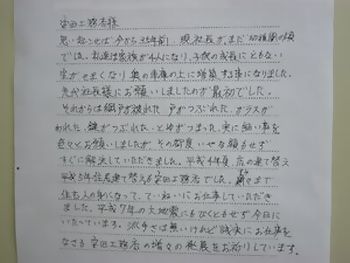 宮田工務店様
思い起こせば今から35年前、現社長がまだ幼稚園の頃
でした。私達は家族が4人になり、子供の成長にともない
家がせまくなり奥の車庫の上に増築する事になりました。
先代社長様にお願いしましたのが最初でした。
それからは網戸が破れた 戸がつぶれた、ガラスが
われた、鍵がつぶれた、とゆがつまった、実に細い事を
色々とお願いしましたが、その都度いやな顔もせず
すぐに解決していただきました。平成4年度、店の建て替え
平成5年住居建て替えも宮田工務店でした。まで
住む人の身になって、ていねいにお仕事していただき
ました。平成7年の大地震にもびくともせず今日に
いたっています。派手さは無いけれど誠実にお仕事を
なさる宮田工務店の増々の発展をお祈りしています。